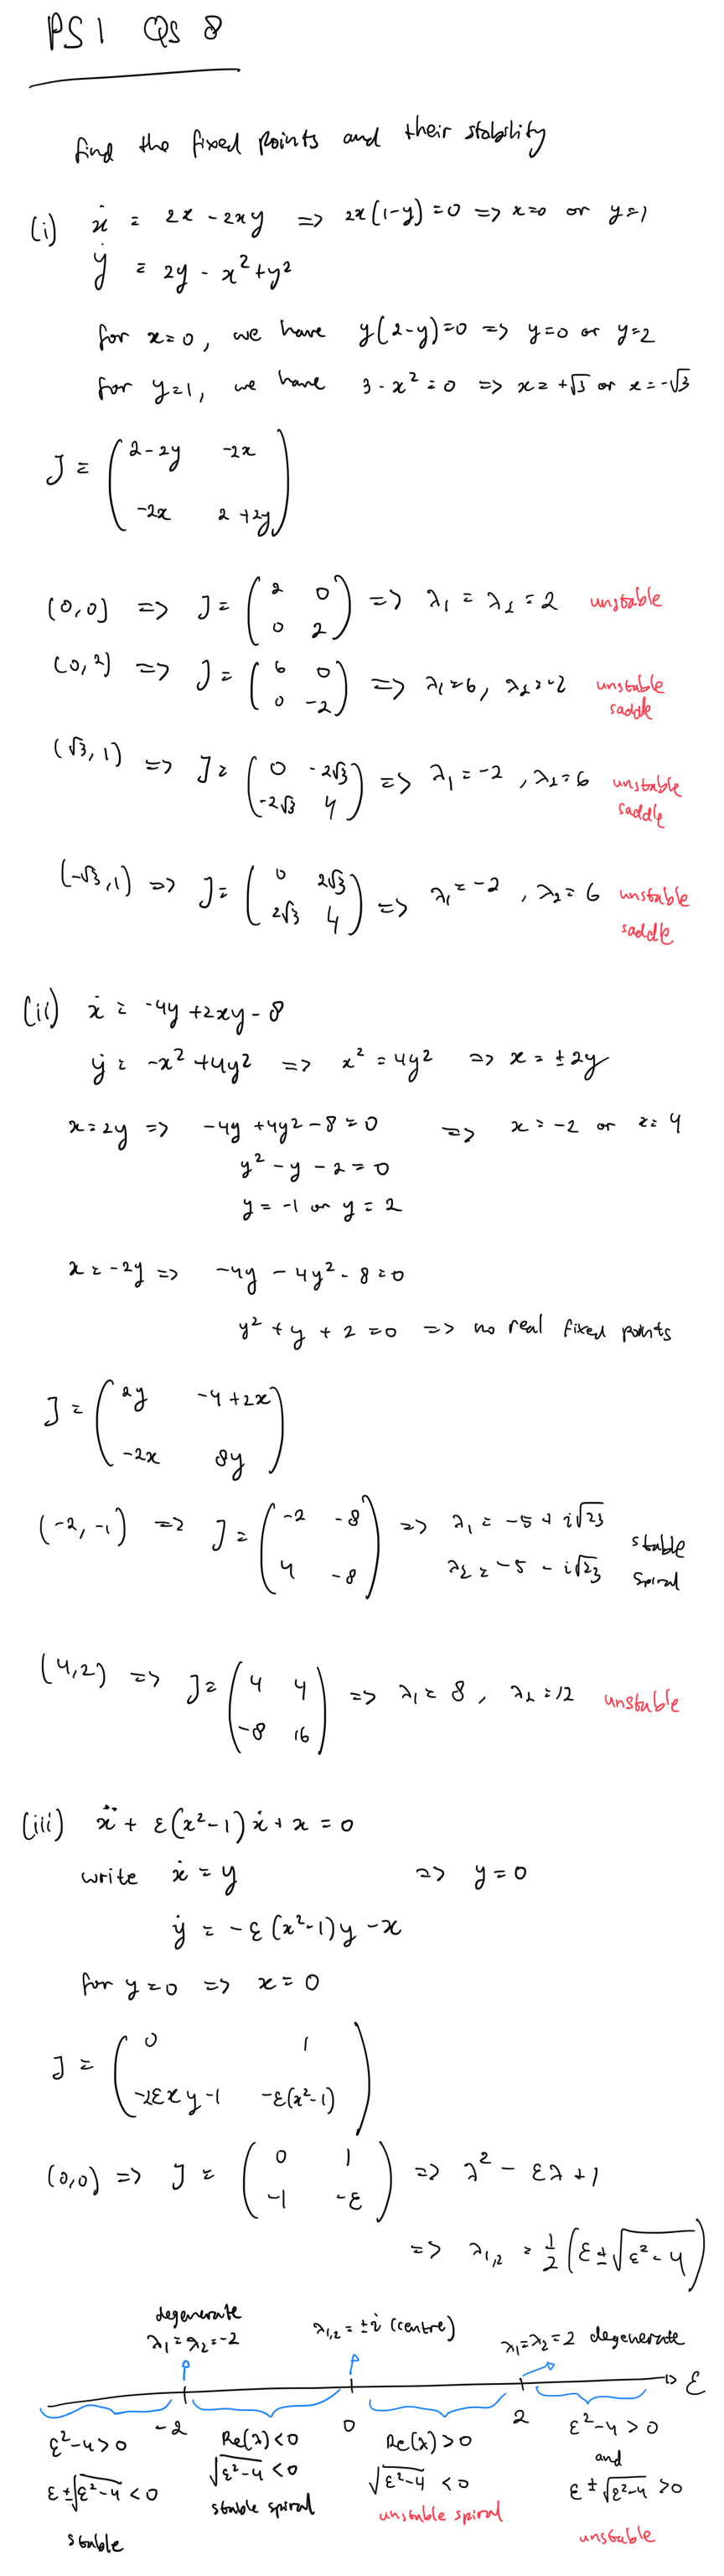 PS1 QS 8
find the fixed points and their stability
(i) ẋ = 2x - 2xy => 2x(1-y) = 0 => x=0 or y=1
ẏ = 2y - x² + y²
for x=0, we have y(2-y)=0 => y=0 or y=2
for y=1, we have 3 - x² = 0 => x = +√3 or x = -√3
J = ( 2-2y -2x
-2x 2+2y )
(0,0) => J = ( 2 0 => λ₁ = λ₂ = 2 unstable
0 2 )
(0,2) => J = ( 6 0 => λ₁=6, λ₂=-2 unstable
0 -2 ) saddle
(√3, 1) => J = ( 0 -2√3 => λ₁ = -2, λ₂ = 6 unstable
-2√3 4 ) saddle
(-√3, 1) => J = ( 0 2√3 => λ₁ = -2, λ₂ = 6 unstable
2√3 4 ) saddle
(ii) ẋ = -4y + 2xy - 8
ẏ = -x² + 4y² => x² = 4y² => x = ±2y
x = 2y => -4y + 4y² - 8 = 0 => x = -2 or x = 4
y² - y - 2 = 0
y = -1 or y = 2
x = -2y => -4y - 4y² - 8 = 0
y² + y + 2 = 0 => no real fixed points
J = ( 2y -4+2x
-2x 8y )
(-2, -1) => J = ( -2 -8 => λ₁ = -5 + i√23 stable
4 -8 ) λ₂ = -5 - i√23 spiral
(4,2) => J = ( 4 4 => λ₁ = 8, λ₂ = 12 unstable
-8 16 )
(iii) ẍ + ε(x²-1)ẋ + x = 0
write ẋ = y => y = 0
ẏ = -ε(x²-1)y - x
for y=0 => x = 0
J = ( 0 1
-2εxy-1 -ε(x²-1) )
(0,0) => J = ( 0 1 => λ² - ελ + 1
-1 -ε )
=> λ₁,₂ = ½(ε ± √(ε²-4))
degenerate
λ₁=λ₂=-2 λ₁,₂ = ±i (centre) λ₁=λ₂=2 degenerate
ε
-2 0 2
ε²-4>0 Re(λ)<0 Re(λ)>0 ε²-4>0
and
ε±√(ε²-4)<0 √(ε²-4)<0 √(ε²-4)<0 ε±√(ε²-4)>0
stable stable spiral unstable spiral unstable